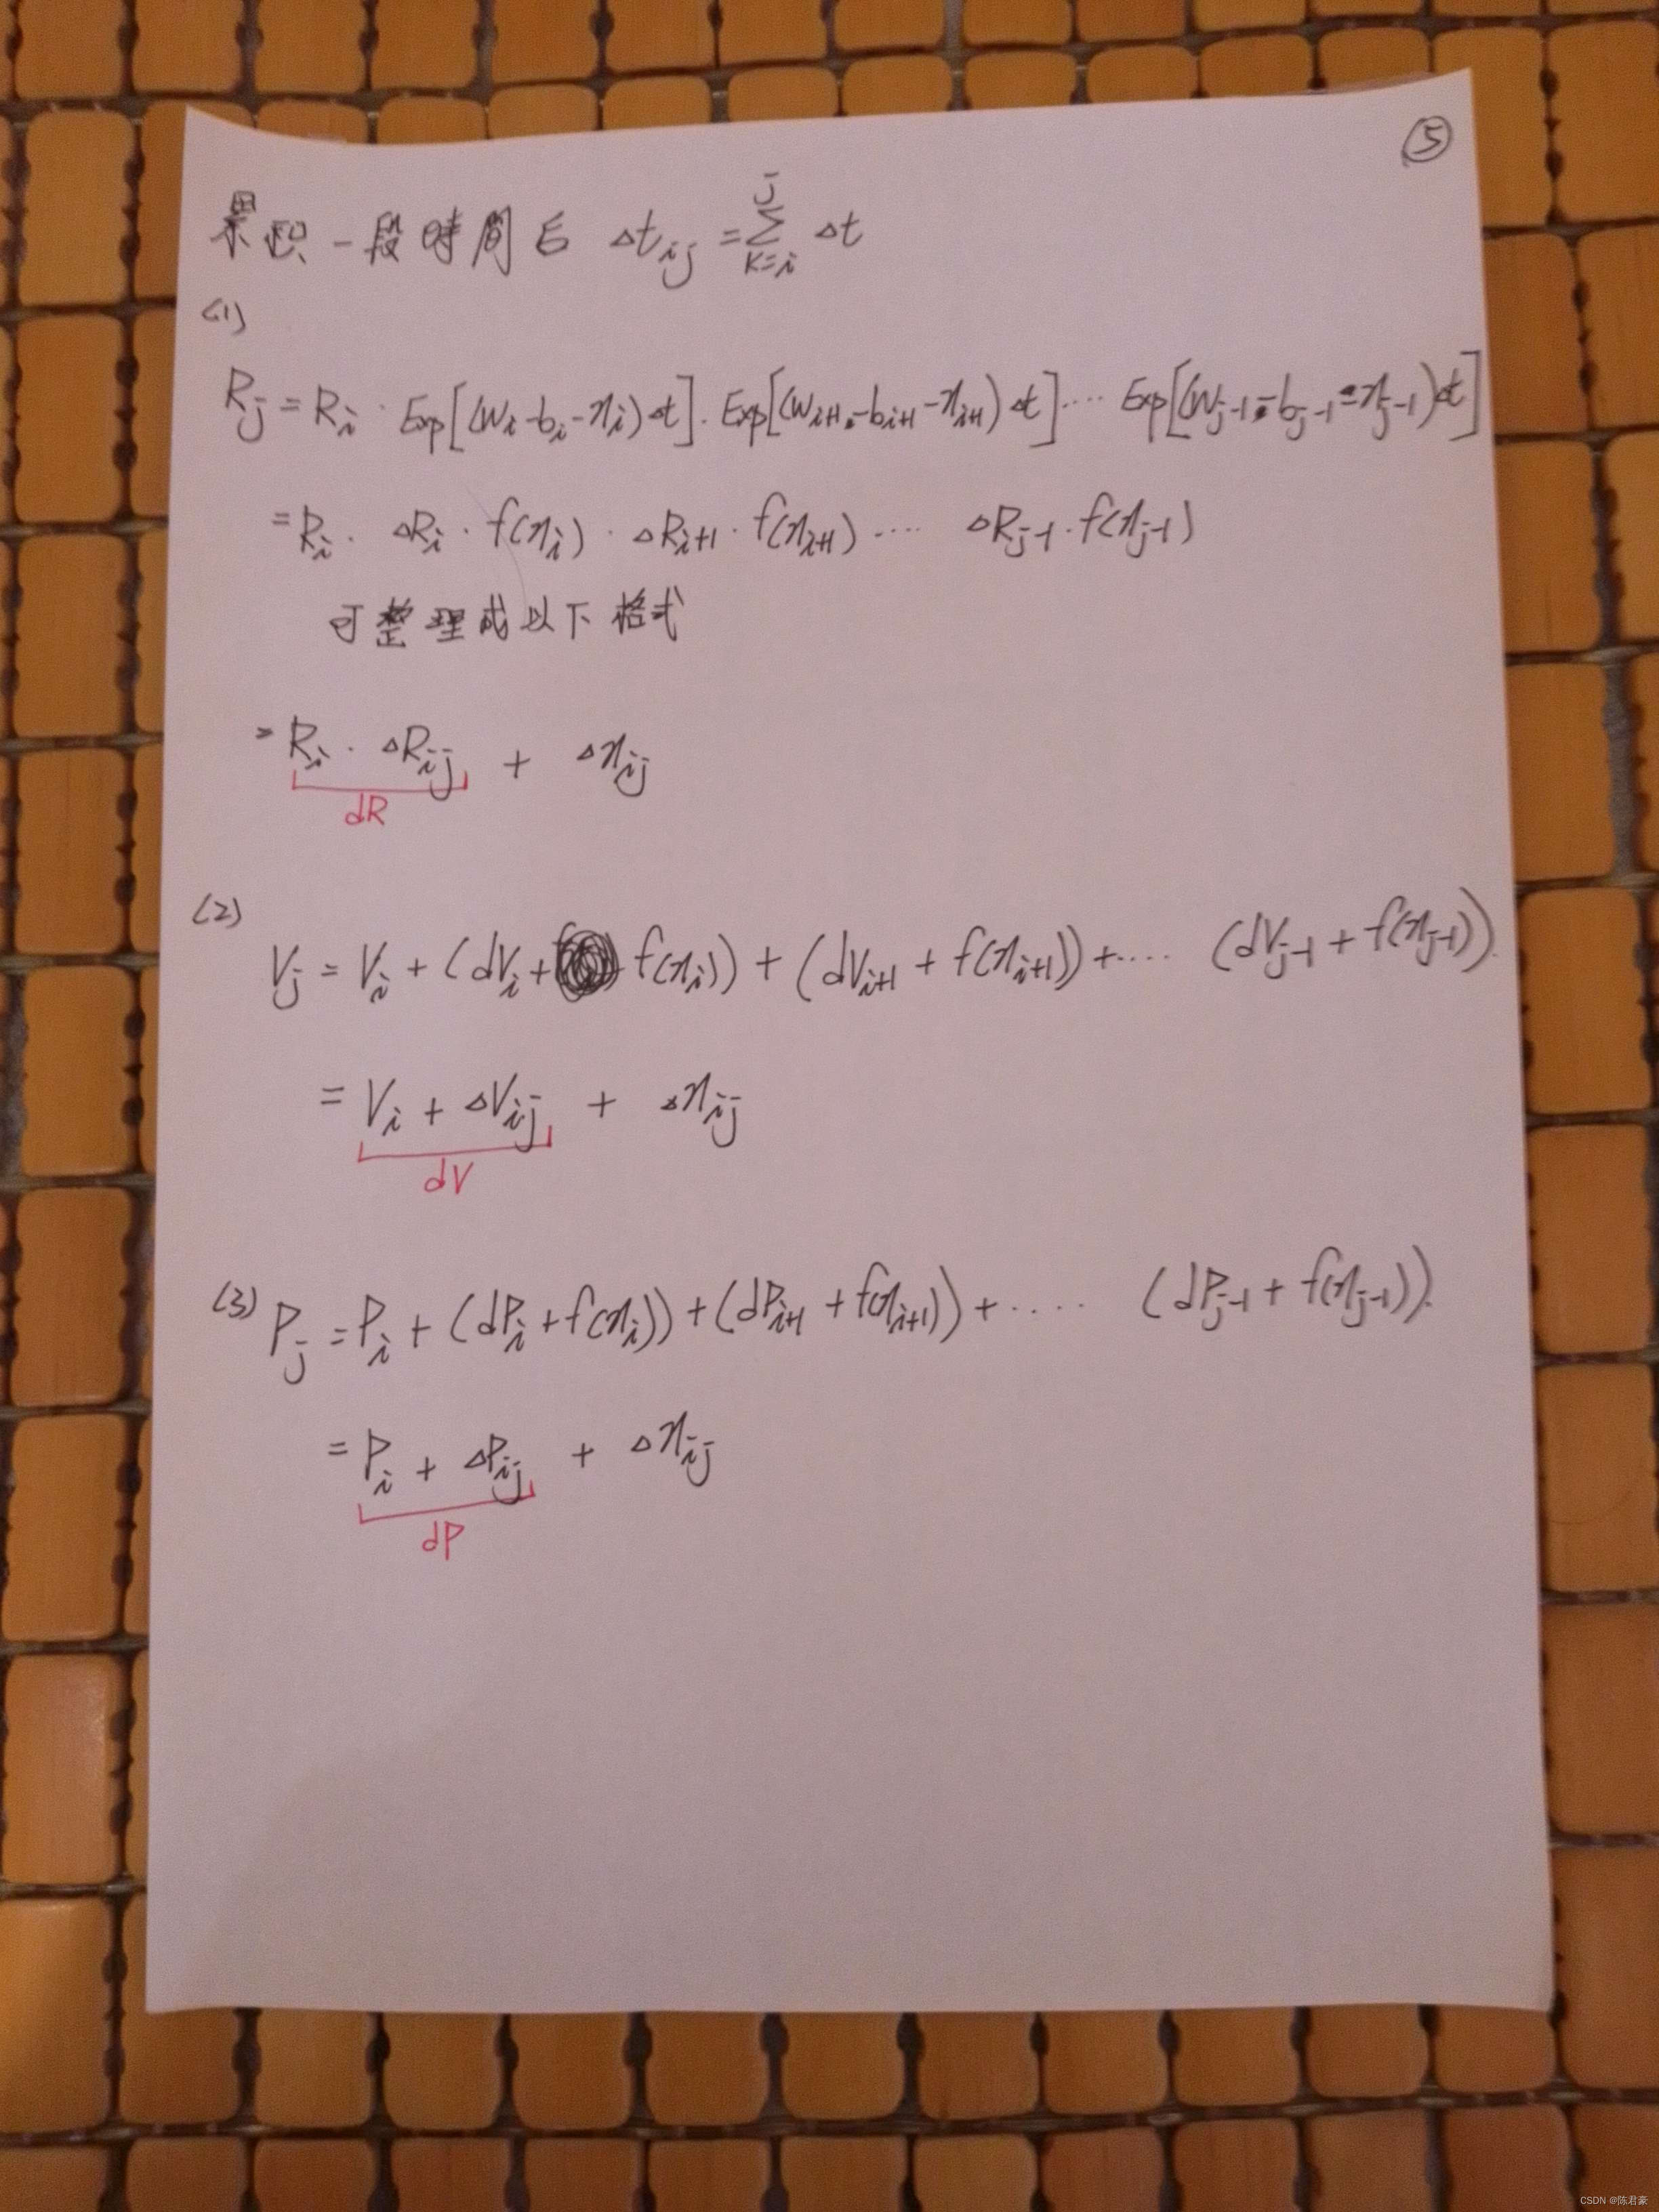 ⑤
累积一段時間后 Δt_ij = Σ_{k=i}^{j} Δt
(1)
R_j = R_i · Exp[(w_i - b_i - η_i)Δt] · Exp[(w_{i+1} - b_{i+1} - η_{i+1})Δt] ···· Exp[(w_{j-1} - b_{j-1} - η_{j-1})Δt]
= R_i · ΔR_i · f(η_i) · ΔR_{i+1} · f(η_{i+1}) ···· ΔR_{j-1} · f(η_{j-1})
可整理成以下格式
= R_i · ΔR_ij + Δη_ij
dR
(2)
V_j = V_i + (dV_i + f(η_i)) + (dV_{i+1} + f(η_{i+1})) + ···· (dV_{j-1} + f(η_{j-1})).
= V_i + ΔV_ij + Δη_ij
dV
(3) P_j = P_i + (dP_i + f(η_i)) + (dP_{i+1} + f(η_{i+1})) + ···· (dP_{j-1} + f(η_{j-1})).
= P_i + ΔP_ij + Δη_ij
dP
CSDN @陈君豪